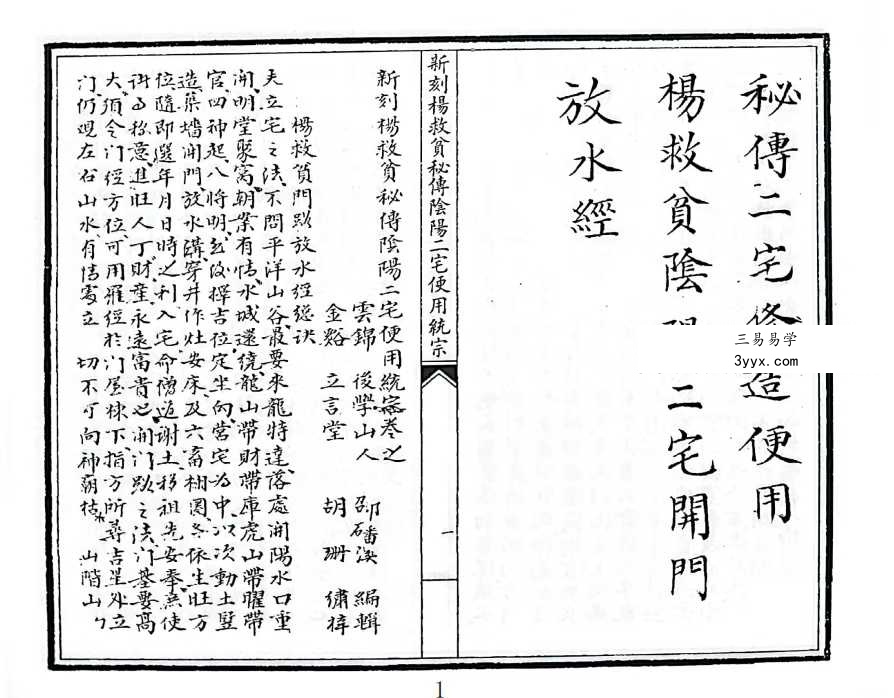 秘傳二宅修造便用
楊救貧陰陽二宅開門
放水經
三易易学
3yyx.com
新刻楊救貧秘傳陰陽二宅便用統宗
一
新刻楊救貧秘傳陰陽二宅便用統宗卷之
雲錦 後學山人 邵磻溪 編輯
金谿 立言堂 胡珊 繡梓
楊救貧門路放水經總訣
夫立宅之法不問平洋山谷最要來龍特達落處開陽水口重
開明堂聚窩朝案有情水城還繞龍山帶財帶庫虎山帶曜帶
官四神起八將明然後擇吉位定坐向营宅为中以次動土竪
造築墻開門放水溝穿井作灶安床及六畜欄圈各依生旺方
位隨即選年月日時之利入宅命僧道谢土移祖先安奉無使
稱意進旺人丁財產永遠富貴也開門路之法門基要高
大須令门經方位可用羅經於门屋棟下指方所尋吉星外立
门仍观左右山水有情處立 切不可向神朝枝 山階山
1